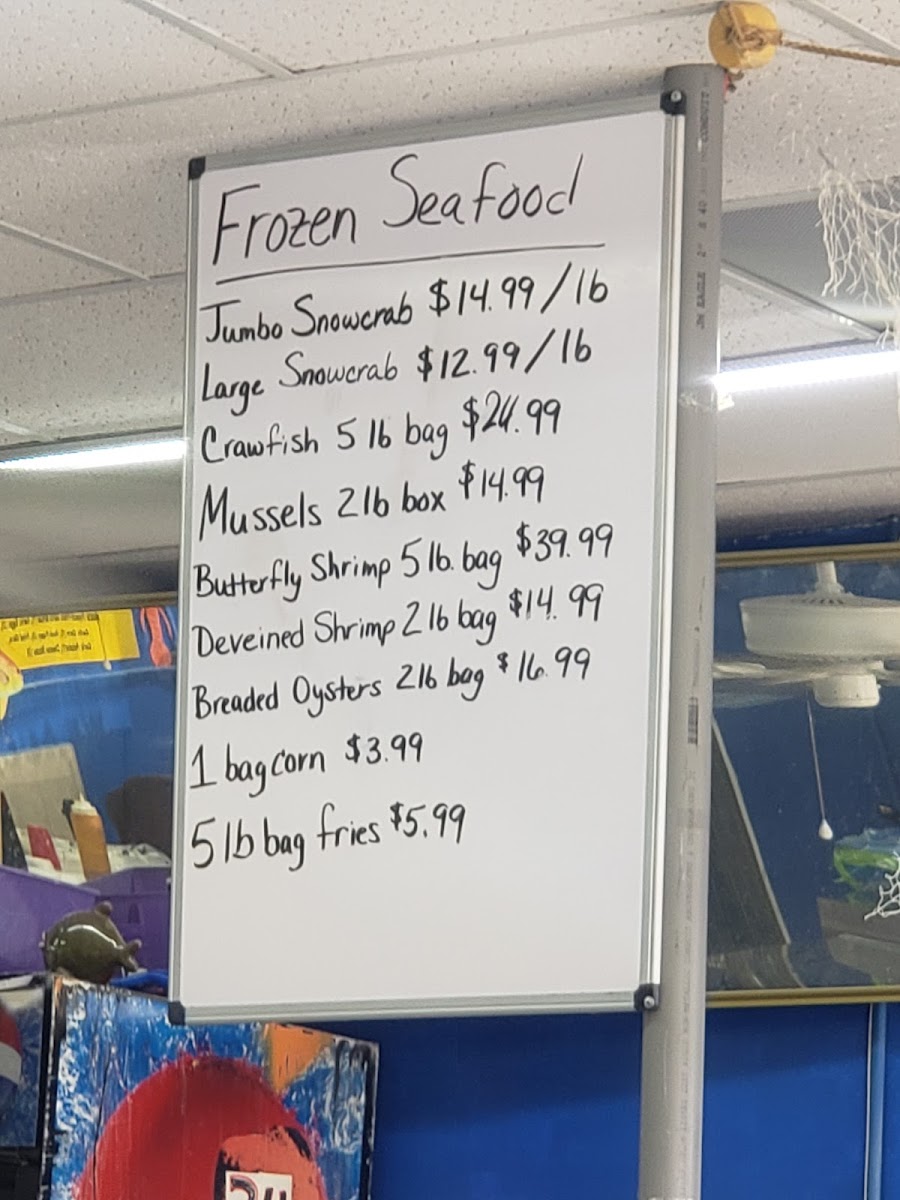 Frozen Seafood
Jumbo Snowcrab $14.99/lb
Large Snowcrab $12.99/lb
Crawfish 5 lb bag $24.99
Mussels 2lb box $14.99
Butterfly Shrimp 5 lb. bag $39.99
Deveined Shrimp 2 lb bag $14.99
Breaded Oysters 2lb bag $16.99
1 bag corn $3.99
5 lb bag fries $5.99